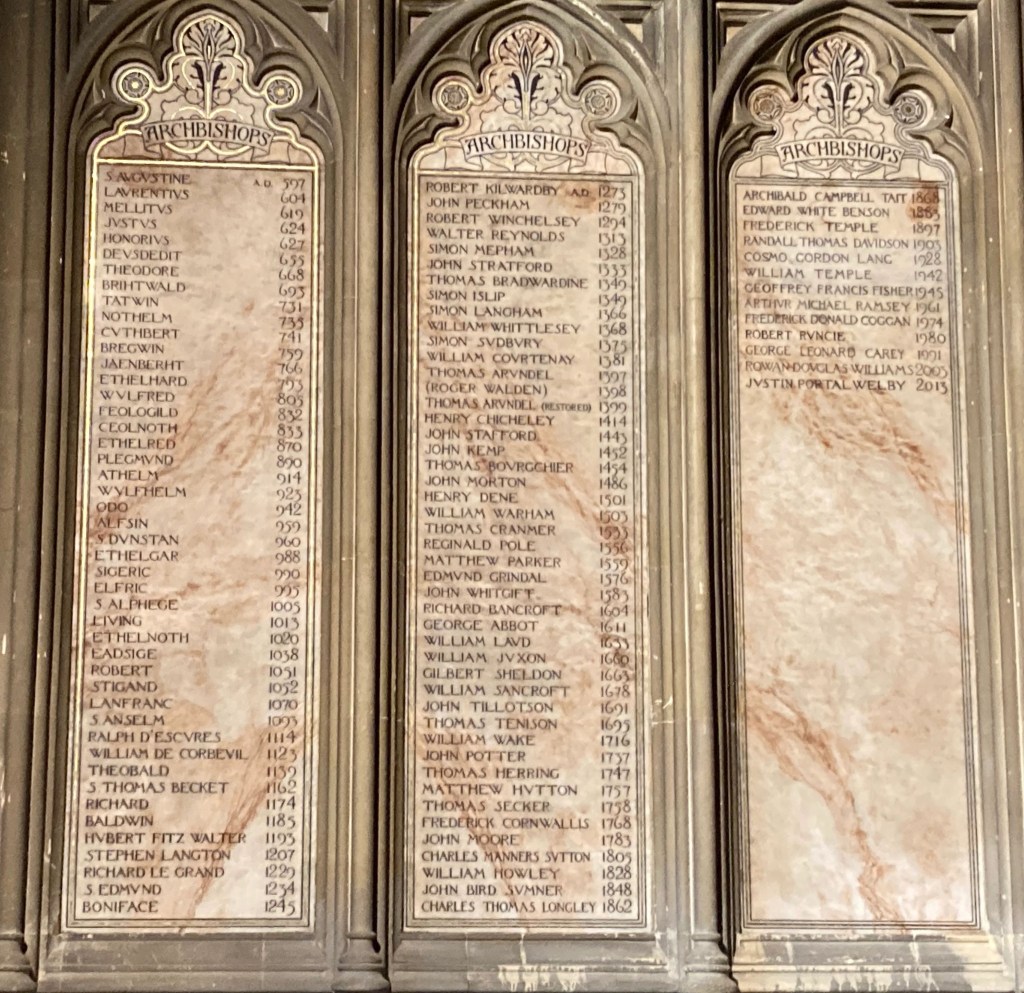 ARCHBISHOPS
S. AVGVSTINE A.D. 597
LAVRENTIVS 604
MELLITVS 619
JVSTVS 624
HONORIVS 627
DEVSDEDIT 655
THEODORE 668
BRIHTWALD 693
TATWIN 731
NOTHELM 735
CVTHBERT 741
BREGWIN 759
JAENBERHT 766
ETHELHARD 793
WVLFRED 805
FEOLOGILD 832
CEOLNOTH 833
ETHELRED 870
PLEGMVND 890
ATHELM 914
WVLFHELM 923
ODO 942
ALFSIN 959
S. DVNSTAN 960
ETHELGAR 988
SIGERIC 990
ELFRIC 995
S. ALPHEGE 1005
LIVING 1013
ETHELNOTH 1020
EADSIGE 1038
ROBERT 1051
STIGAND 1052
LANFRANC 1070
S. ANSELM 1093
RALPH D'ESCVRES 1114
WILLIAM DE CORBEVIL 1123
THEOBALD 1139
S. THOMAS BECKET 1162
RICHARD 1174
BALDWIN 1185
HVBERT FITZ WALTER 1193
STEPHEN LANGTON 1207
RICHARD LE GRAND 1229
S. EDMVND 1234
BONIFACE 1245
ARCHBISHOPS
ROBERT KILWARDBY A.D. 1273
JOHN PECKHAM 1279
ROBERT WINCHELSEY 1294
WALTER REYNOLDS 1313
SIMON MEPHAM 1328
JOHN STRATFORD 1333
THOMAS BRADWARDINE 1349
SIMON ISLIP 1349
SIMON LANGHAM 1366
WILLIAM WHITTLESEY 1368
SIMON SVDBVRY 1375
WILLIAM COVRTENAY 1381
THOMAS ARVNDEL 1397
(ROGER WALDEN) 1398
THOMAS ARVNDEL (RESTORED) 1399
HENRY CHICHELEY 1414
JOHN STAFFORD 1443
JOHN KEMP 1452
THOMAS BOVRGCHIER 1454
JOHN MORTON 1486
HENRY DENE 1501
WILLIAM WARHAM 1503
THOMAS CRANMER 1533
REGINALD POLE 1556
MATTHEW PARKER 1559
EDMVND GRINDAL 1576
JOHN WHITGIFT 1583
RICHARD BANCROFT 1604
GEORGE ABBOT 1611
WILLIAM LAVD 1633
WILLIAM JVXON 1660
GILBERT SHELDON 1663
WILLIAM SANCROFT 1678
JOHN TILLOTSON 1691
THOMAS TENISON 1695
WILLIAM WAKE 1716
JOHN POTTER 1737
THOMAS HERRING 1747
MATTHEW HVTTON 1757
THOMAS SECKER 1758
FREDERICK CORNWALLIS 1768
JOHN MOORE 1783
CHARLES MANNERS SVTTON 1805
WILLIAM HOWLEY 1828
JOHN BIRD SVMNER 1848
CHARLES THOMAS LONGLEY 1862
ARCHBISHOPS
ARCHIBALD CAMPBELL TAIT 1868
EDWARD WHITE BENSON 1883
FREDERICK TEMPLE 1897
RANDALL THOMAS DAVIDSON 1903
COSMO GORDON LANG 1928
WILLIAM TEMPLE 1942
GEOFFREY FRANCIS FISHER 1945
ARTHVR MICHAEL RAMSEY 1961
FREDERICK DONALD COGGAN 1974
ROBERT RVNCIE 1980
GEORGE LEONARD CAREY 1991
ROWAN DOVGLAS WILLIAMS 2003
JVSTIN PORTAL WELBY 2013